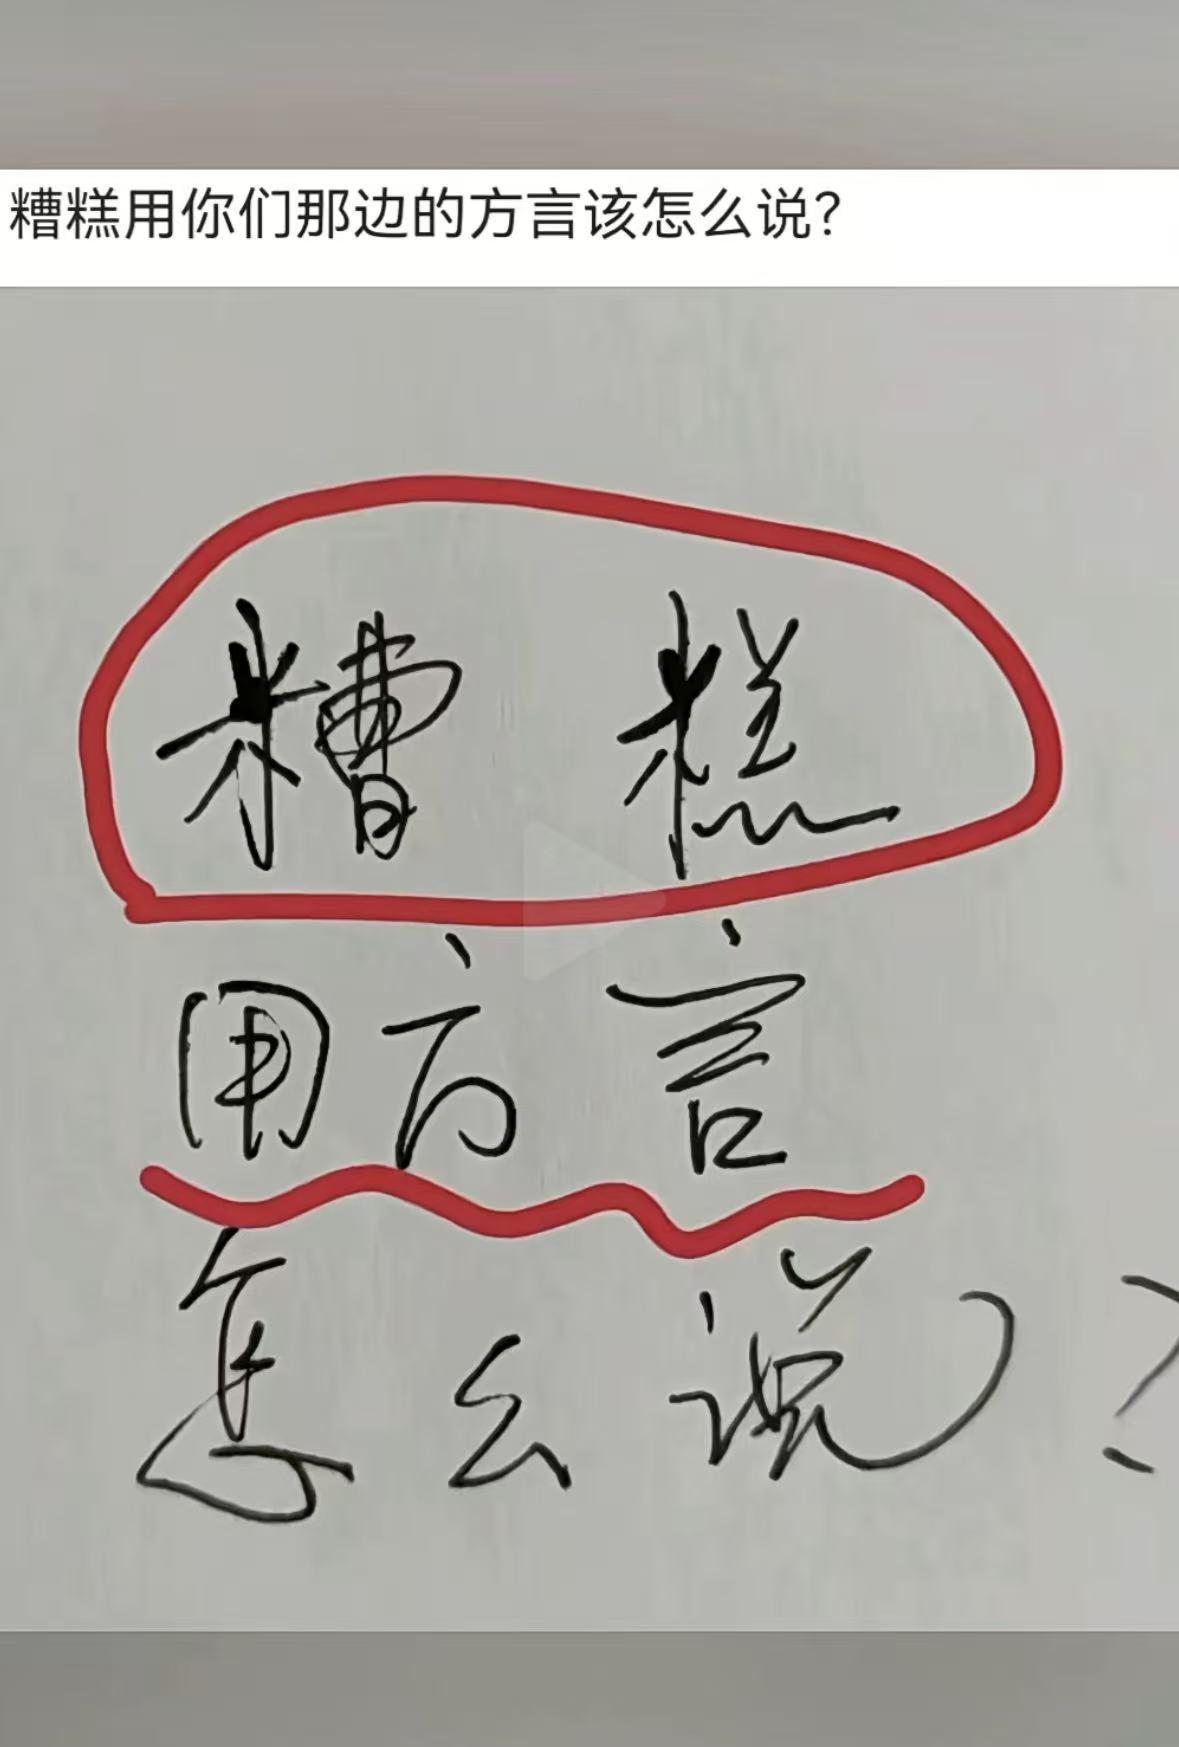 糟糕用你们那边的方言该怎么说？
糟糕
用方言
怎么说？